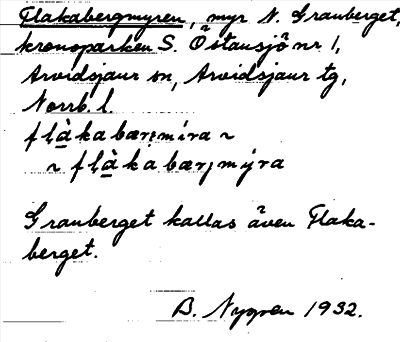 Flakabergmyren, myr N. Granberget,
kronoparken S. Östansjö nr 1,
Arvidsjaur sn, Arvidsjaur tg,
Norrb. l.
flàkabærmira ~
~ flàkabærjmyra
Granberget kallas även Flaka-
berget.
B. Nygren 1932.